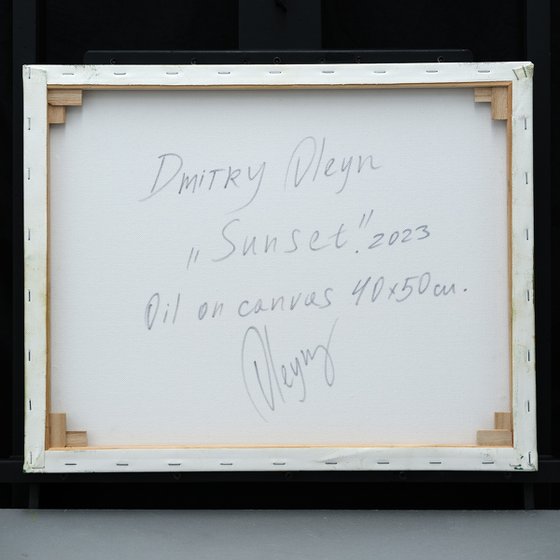 Dmitry Oleyn
„Sunset". 2023
Oil on canvas 40x50cm.
Oleyn